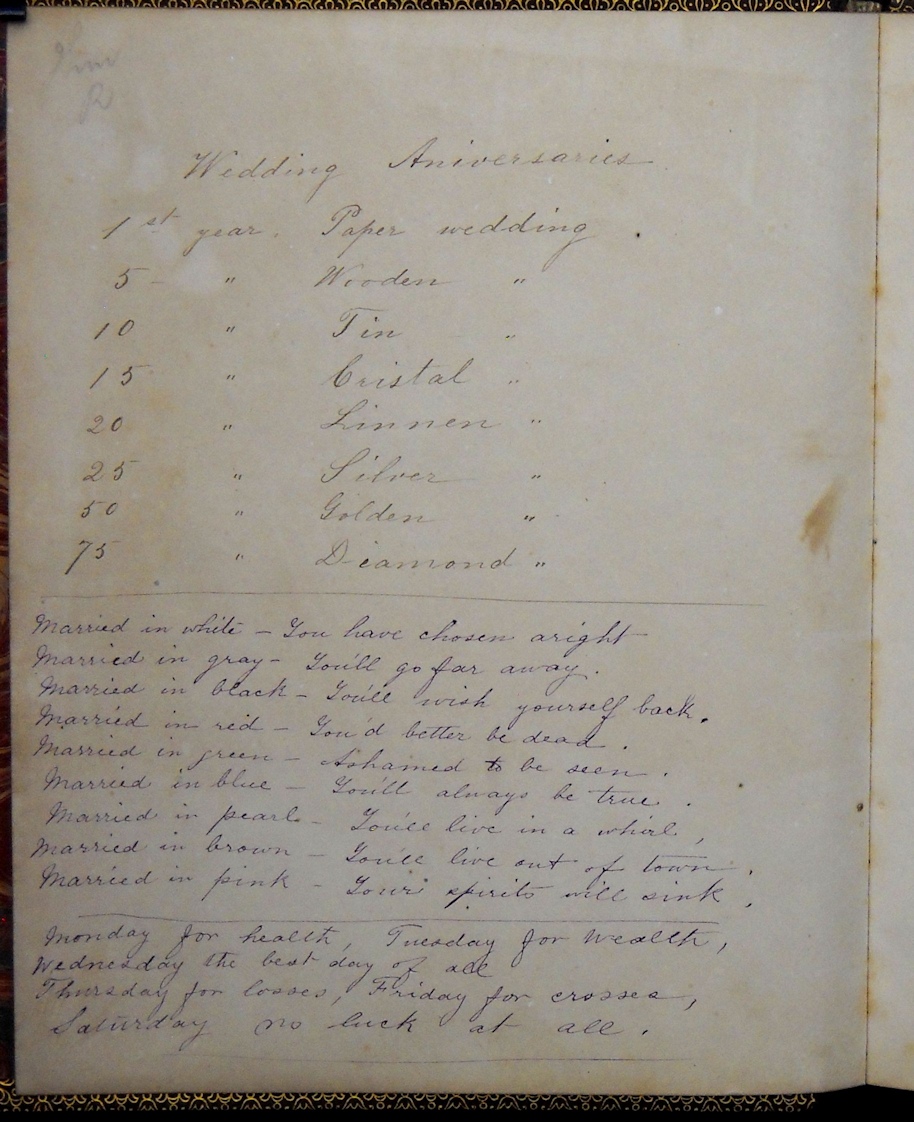 Wedding Aniversaries
1st year. Paper wedding.
5 - " Wooden "
10 " Tin "
15 " Cristal "
20 " Linnen "
25 " Silver "
50 " Golden "
75 " Diamond "
Married in white - You have chosen aright
Married in gray - You'll go far away.
Married in black - You'll wish yourself back.
Married in red - You'd better be dead.
Married in green - Ashamed to be seen.
Married in blue - You'll always be true.
Married in pearl - You'll live in a whirl,
Married in brown - You'll live out of town.
Married in pink - Your spirits will sink.
Monday for health, Tuesday for Wealth,
Wednesday the best day of all
Thursday for losses, Friday for crosses,
Saturday no luck at all.